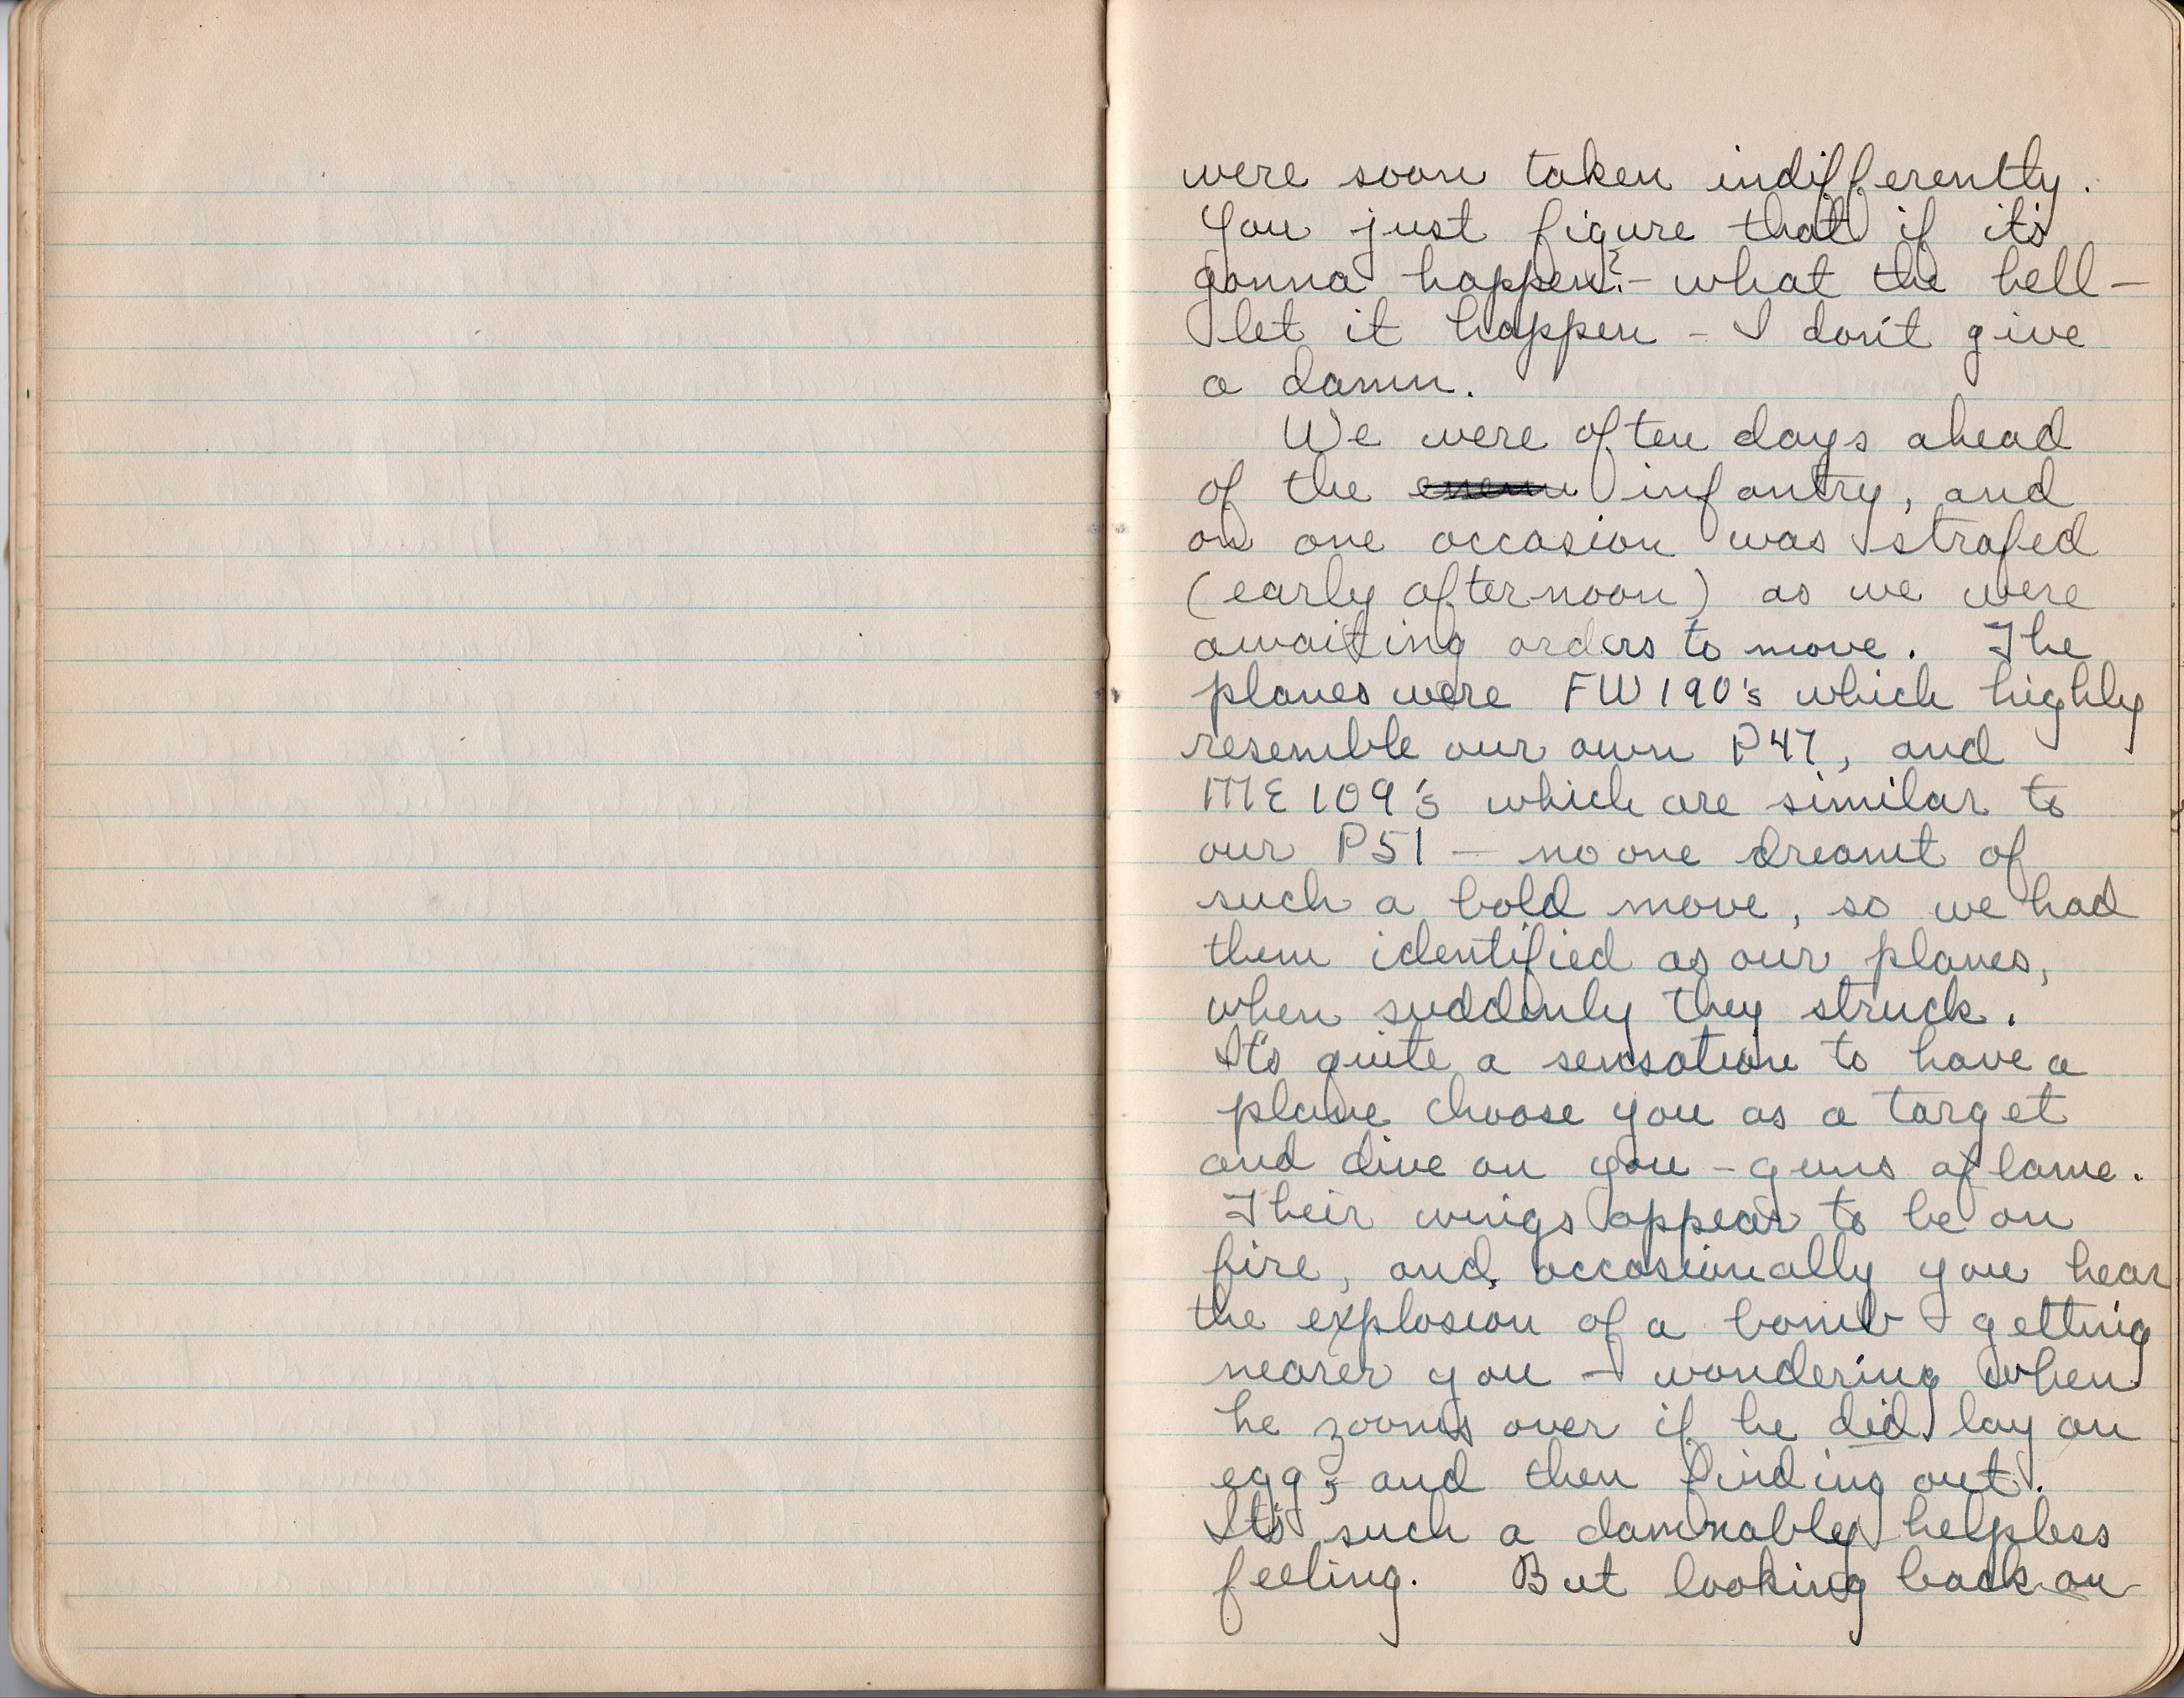 were soon taken indifferently.
You just figure that if it's
gonna happen?- what the hell -
let it happen - I don't give
a damn.
We were often days ahead
of the enem infantry, and
on one occasion was strafed
(early afternoon) as we were
awaiting orders to move. The
planes were FW190's which highly
resemble our own P47, and
ME109's which are similar to
our P51 - no one dreamt of
such a bold move, so we had
them identified as our planes,
when suddenly they struck.
It's quite a sensation to have a
plane choose you as a target
and dive on you - guns aflame.
Their wings appear to be on
fire, and, occasionally you hear
the explosion of a bomb - getting
nearer you - wondering when
he zooms over if he did lay an
egg, and then finding out.
It's such a damnable helpless
feeling. But looking back on